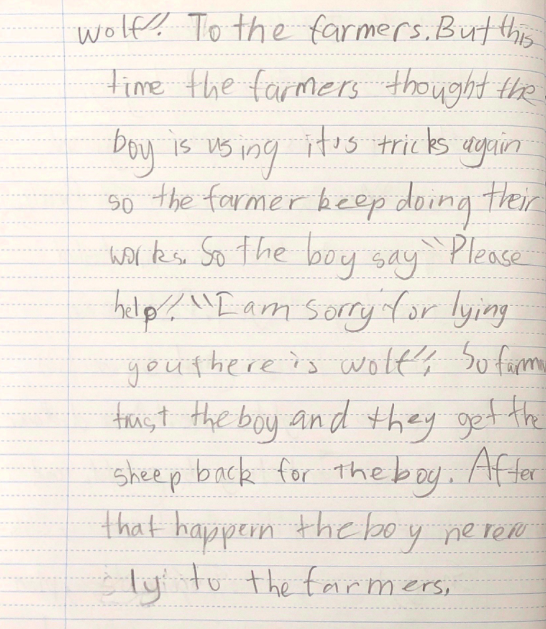 wolf!! To the farmers. But this
time the farmers thought the
boy is using it's tricks again
so the farmer keep doing their
works. So the boy say "Please
help!! "I am sorry for lying
you there is wolf!! So farm
trust the boy and they get the
sheep back for the boy. After
that happern the boy never
ly to the farmers.